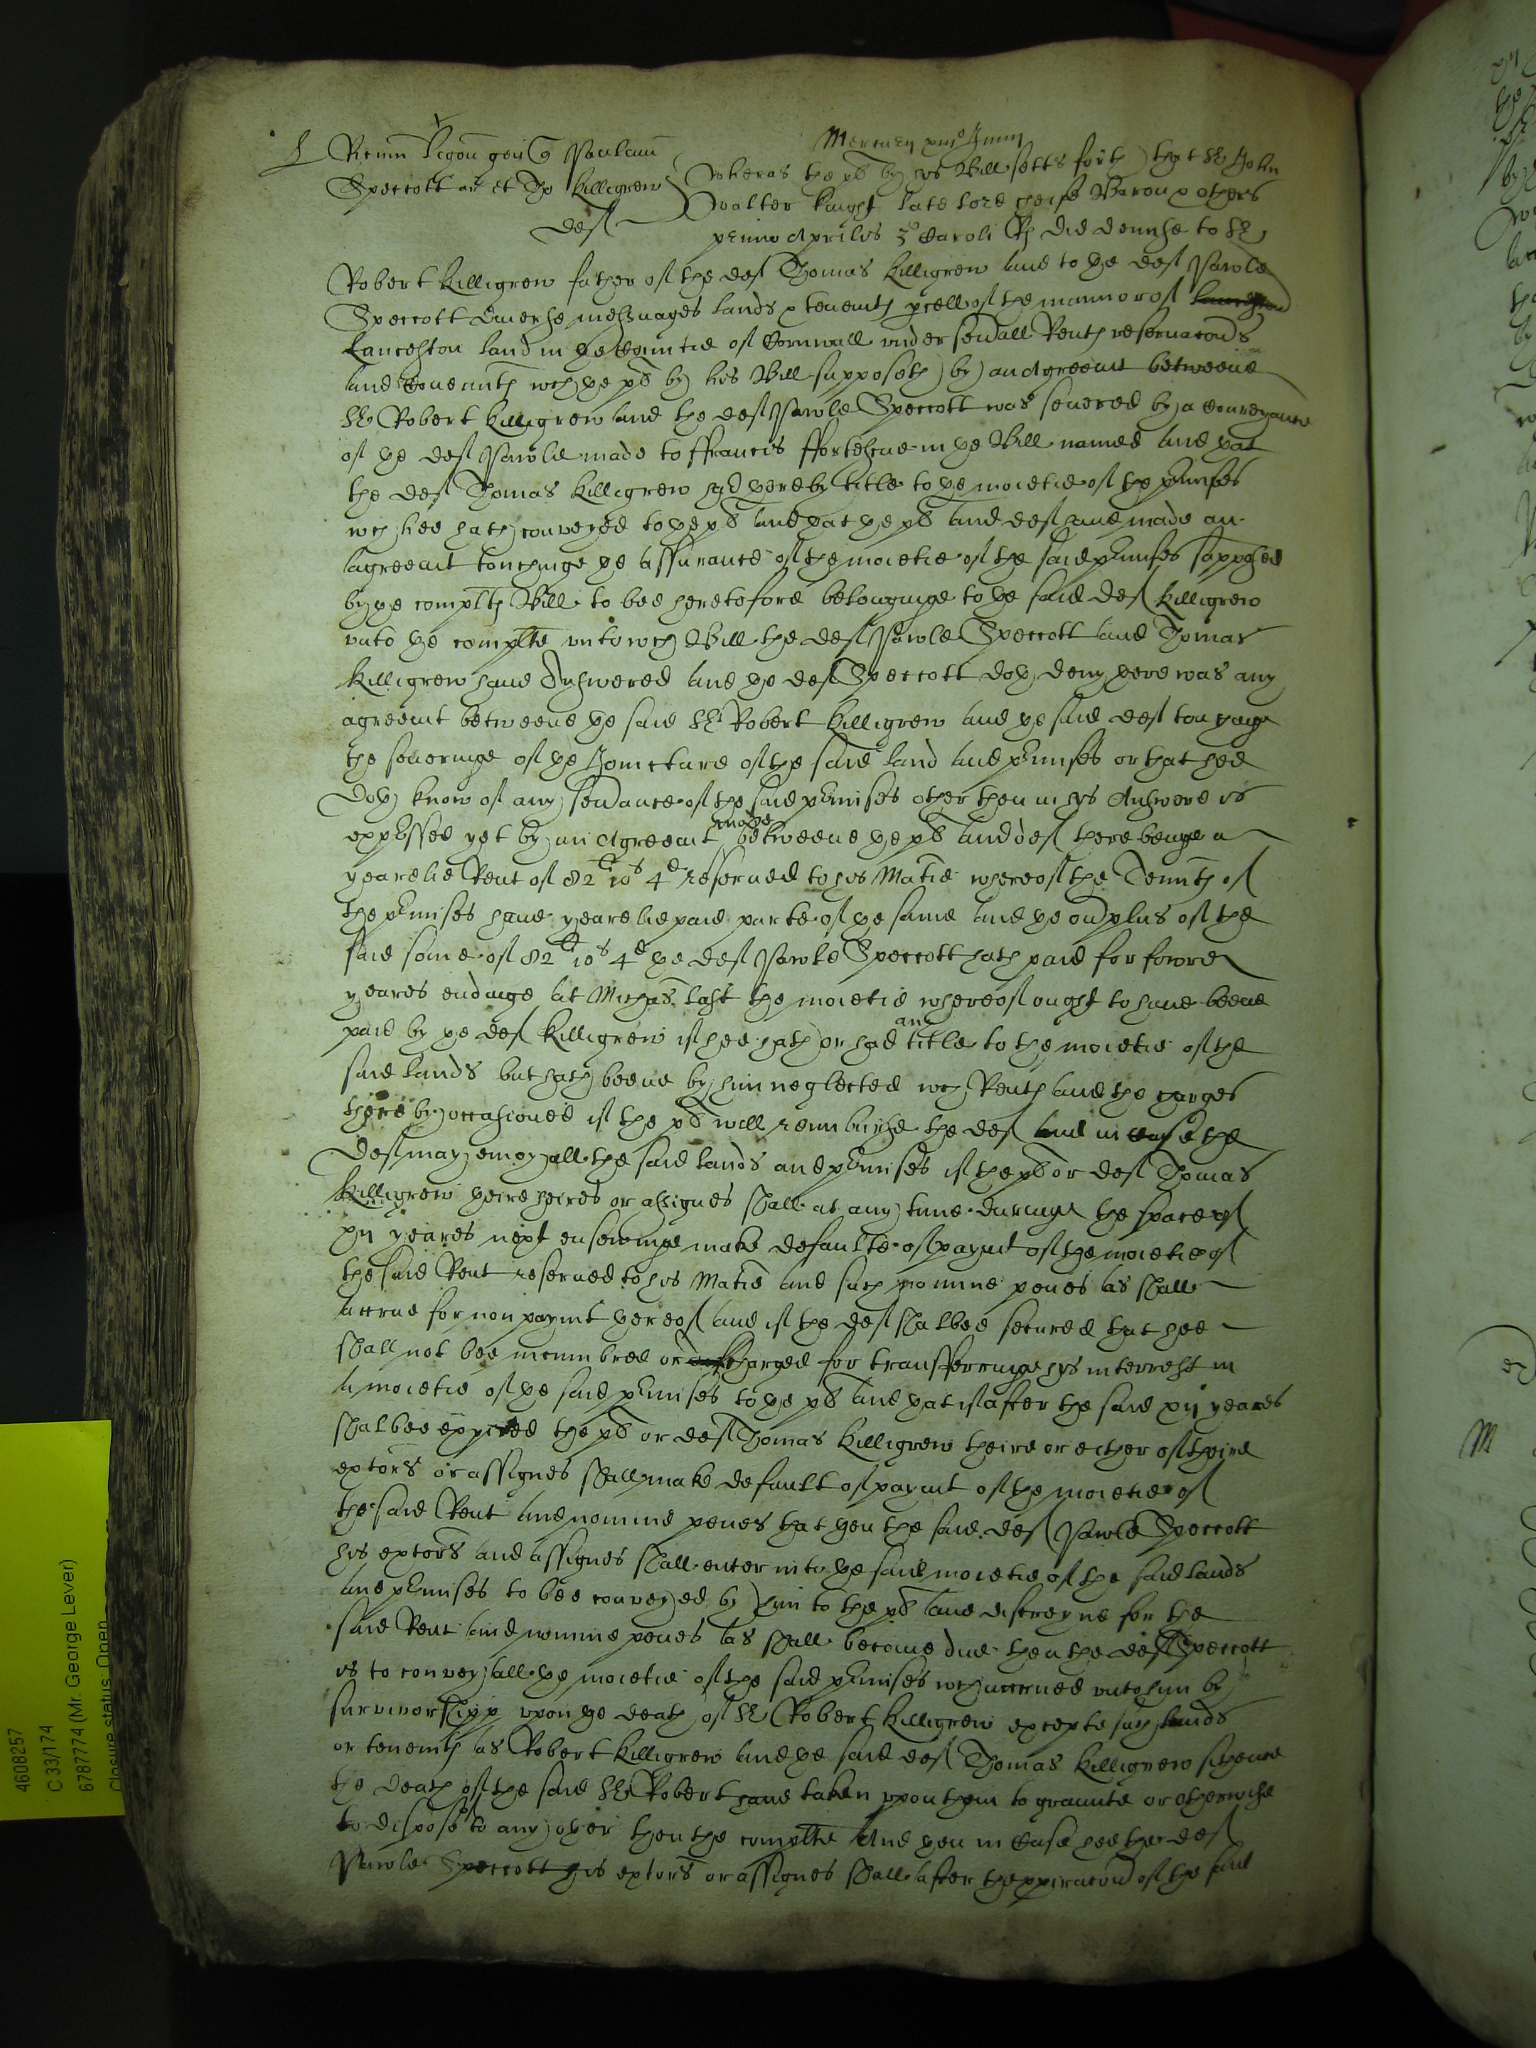 Mercurij primo Junij
Paulum
Speccott ar et Tho Killigrew
def
Wheras the plt by his Bill setts forth that Sr John
Walter knight late lord cheife Baron & others
primo Aprilis 3o Caroli Rs did demyse to Sr
Robert Killigrew father of the def Thomas Killigrew and to ye def Pawle
Speccott diverse messuages lands & tenemts pcell of the mannor of
Lanceston land in ye Countie of Cornwall under sevrall Rents reservacons
and Covenants wch ye plt by his Bill supposeth by an agreemt betweene
Sr Robert Killigrew and the def Pawle Speccott was severed by a Conveyance
of ye def Pawle made to ffrancis ffortescue in ye Bill named and yat
the def Thomas Killigrew had yereby title to ye moietie of the pmisses
wch hee hath conveyed to ye plt and yat ye plt and def have made an
agreemt touchinge ye assurance of the moietie of the said pmisses supposed
by ye complts Bill to bee heretofore belonginge to ye said def Killigrew
unto ye complte unto wch Bill the def Pawle Speccott and Thomas
Killigrew have Answered and ye def Speccott doth deny yere was any
agreemt betweene ye said Sr Robert Killigrew and ye said def touchinge
the severinge of ye Joincture of the said land and pmisses or that hee
doth know of any sevrance of the said pmises other then in his Answere is
expressed yet by an Agreemt made betweene ye plt and def there beinge a
yearelie Rent of 82li 10s 4d reserved to his Matie whereof the Tennts of
the pmises have yearelie paid parte of ye same and ye overplus of the
said some of 82li 10s 4d ye def Pawle Speccott hath paid for fowre
yeares endinge at Michas last the moietie whereof ought to have beene
paid by ye def Killigrew if hee hath or had any title to the moietie of the
said lands but hath beene by him neglected wch Rents and the charges
thereby occasioned if the plt will reimburse the def and in case the
def may enioy all the said lands and pmises if the plt or def Thomas
Killigrew heire heires or assignes shall at any time duringe the space of
xij yeares next ensewinge make defaulte of paymt of the moietie of
the said Rent reserved to his Matie and such nomine penes as shall
accrue for non paymt yereof and if the def shalbee secured that hee
shall not bee incumbred or charged for transferringe his interrest in
a moietie of ye said pmises to ye plt and yat if after the said xij yeares
shalbee expired the plt or def Thomas Killigrew theire or either of theire
extors or assignes shall make default of paymt of the moietie of
the said Rent and nomine penes that then the said def Pawle Speccott
his extors and assignes shall enter into ye said moietie of the said lands
and pmises to bee conveyed by him to the plt and distreyne for the
said Rent and nomine penes as shall become due then the def Speccott
is to convey all ye moietie of the said pmises wch accrued unto him by
survivorshipp upon ye death of Sr Robert Killigrew excepte such lands
or tenemts as Robert Killigrew and ye said def Thomas Killigrew sithence
the death of the said Sr Robert have taken upon them to graunte or otherwise
to dispose to any other then the complte And yen in Case hee the def
Pawle Speccott his extors or assignes shall after thexpiracon of the said
4608257
C 33/174
6787774 (Mr. George Lever)
Closure status: Open